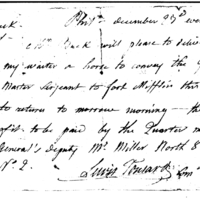 decembre 29
Mr. Buck will please to delive
my waiter a horse to convey the
Master Sergeant to fort Mifflin this
to return to morrow morning — the
to be paid by the Quarter m
General's Deputy Mr. Miller North 8
No 2.
Lewis Tousard